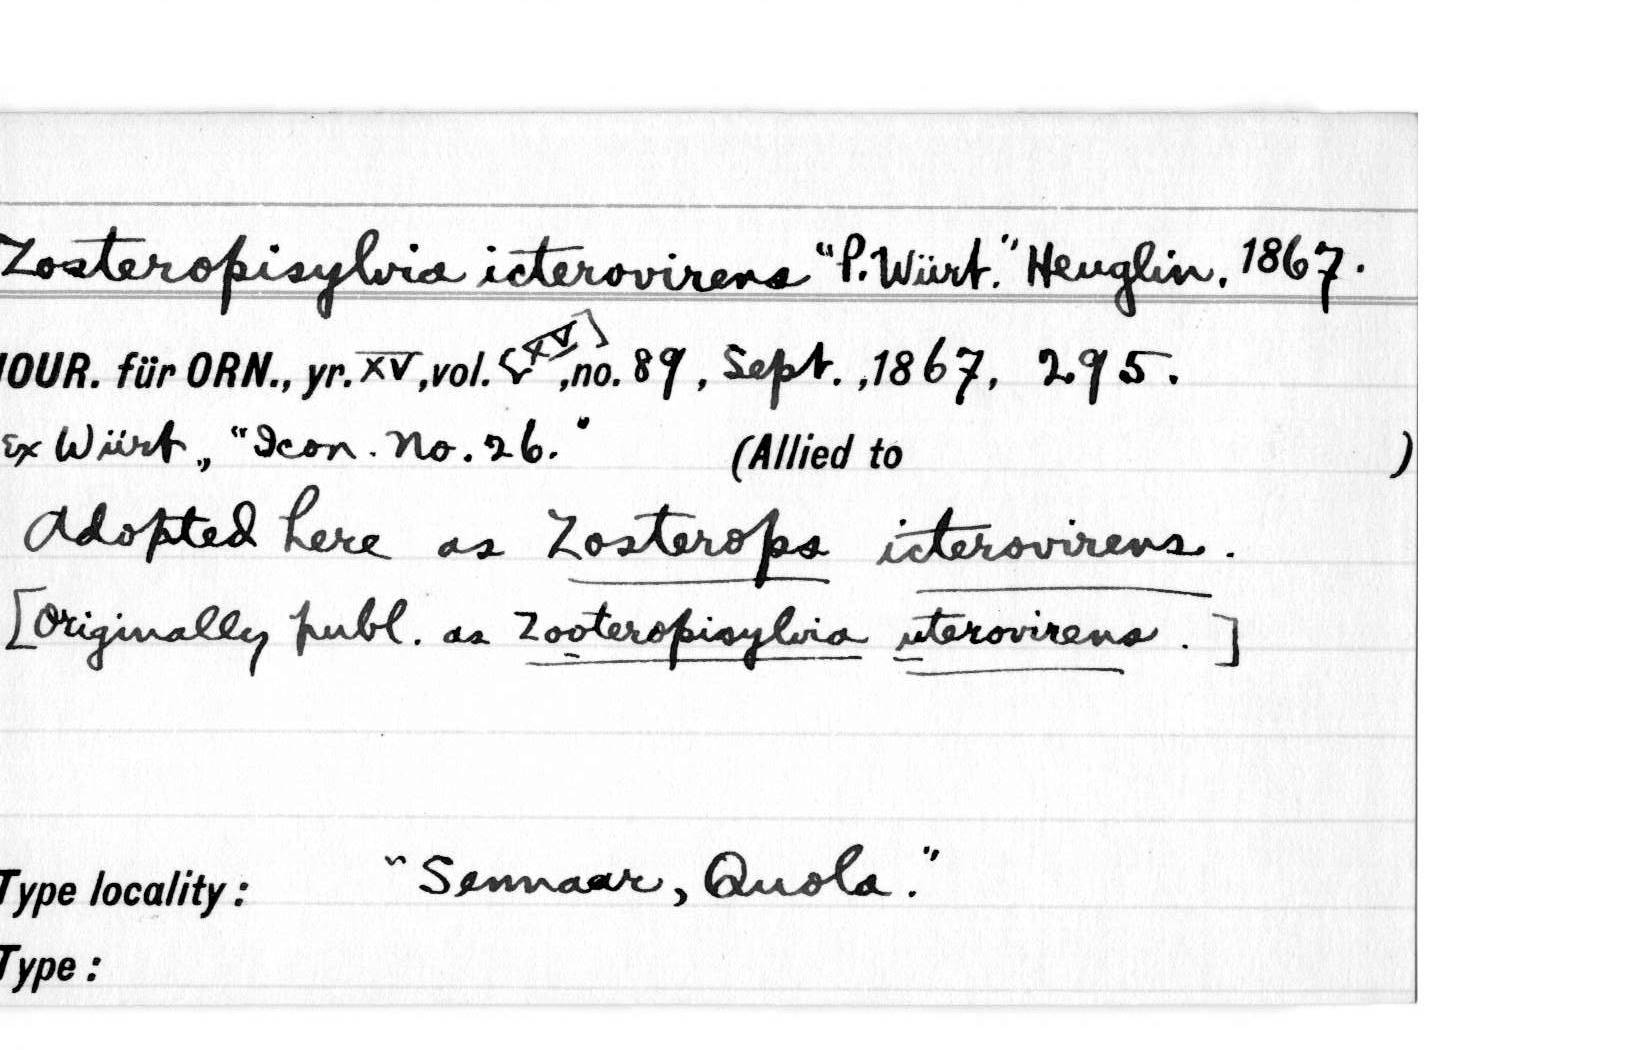 Zosteropisylvia icterovirens "P. Würt." Heuglin, 1867.
JOUR. für ORN., yr. XV, vol. [XV], no. 89, Sept., 1867, 295.
Ex Würt., "Icon. No. 26." (Allied to )
Adopted here as Zosterops icterovirens.
[Originally publ. as Zooteropisylvia uterovirens.]
Type locality: "Sennaar, Quola."
Type: